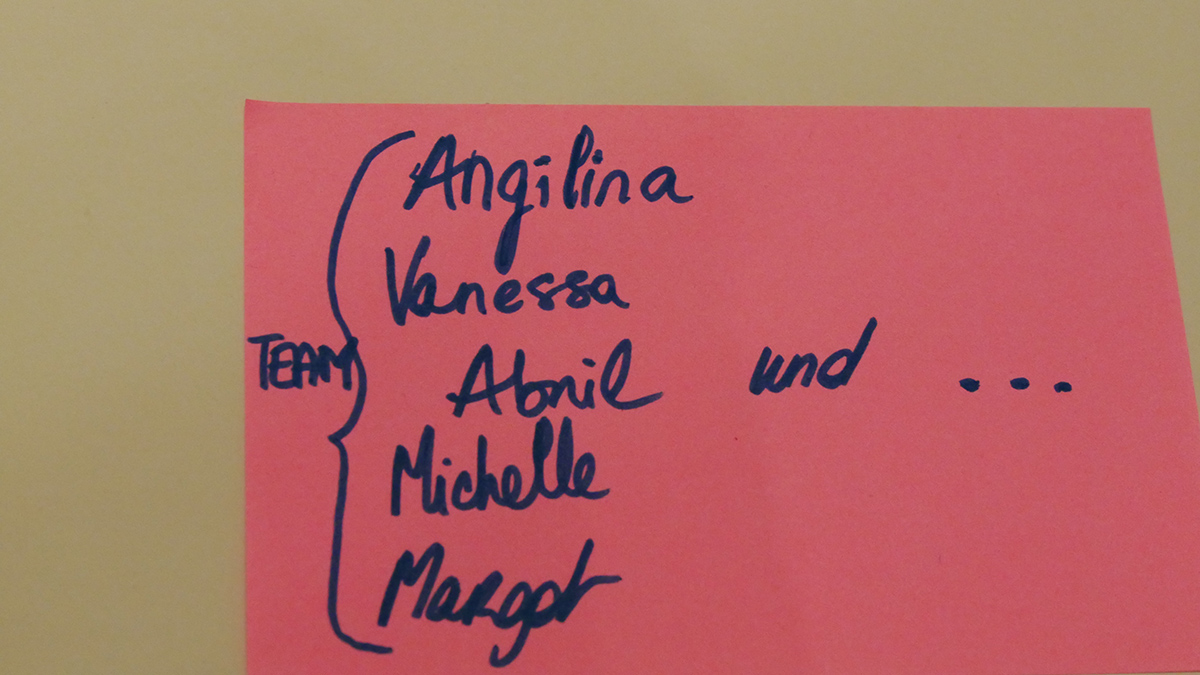 Angilina
Vanessa
TEAM Abril und ...
Michelle
Margot